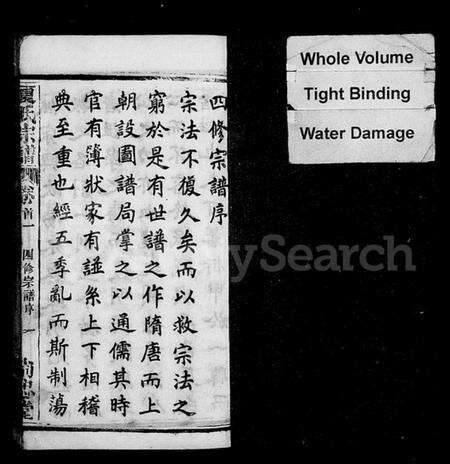 四修宗譜序
宗法不復久矣而以救宗法之
窮於是有世譜之作隋唐而上
朝設圖譜局掌之以通儒其時
官有簿狀家有譜系上下相稽
典至重也經五季亂而斯制蕩
氏宗譜
卷首一
四修宗譜序
一
Whole Volume
Tight Binding
Water Damage
ySearch